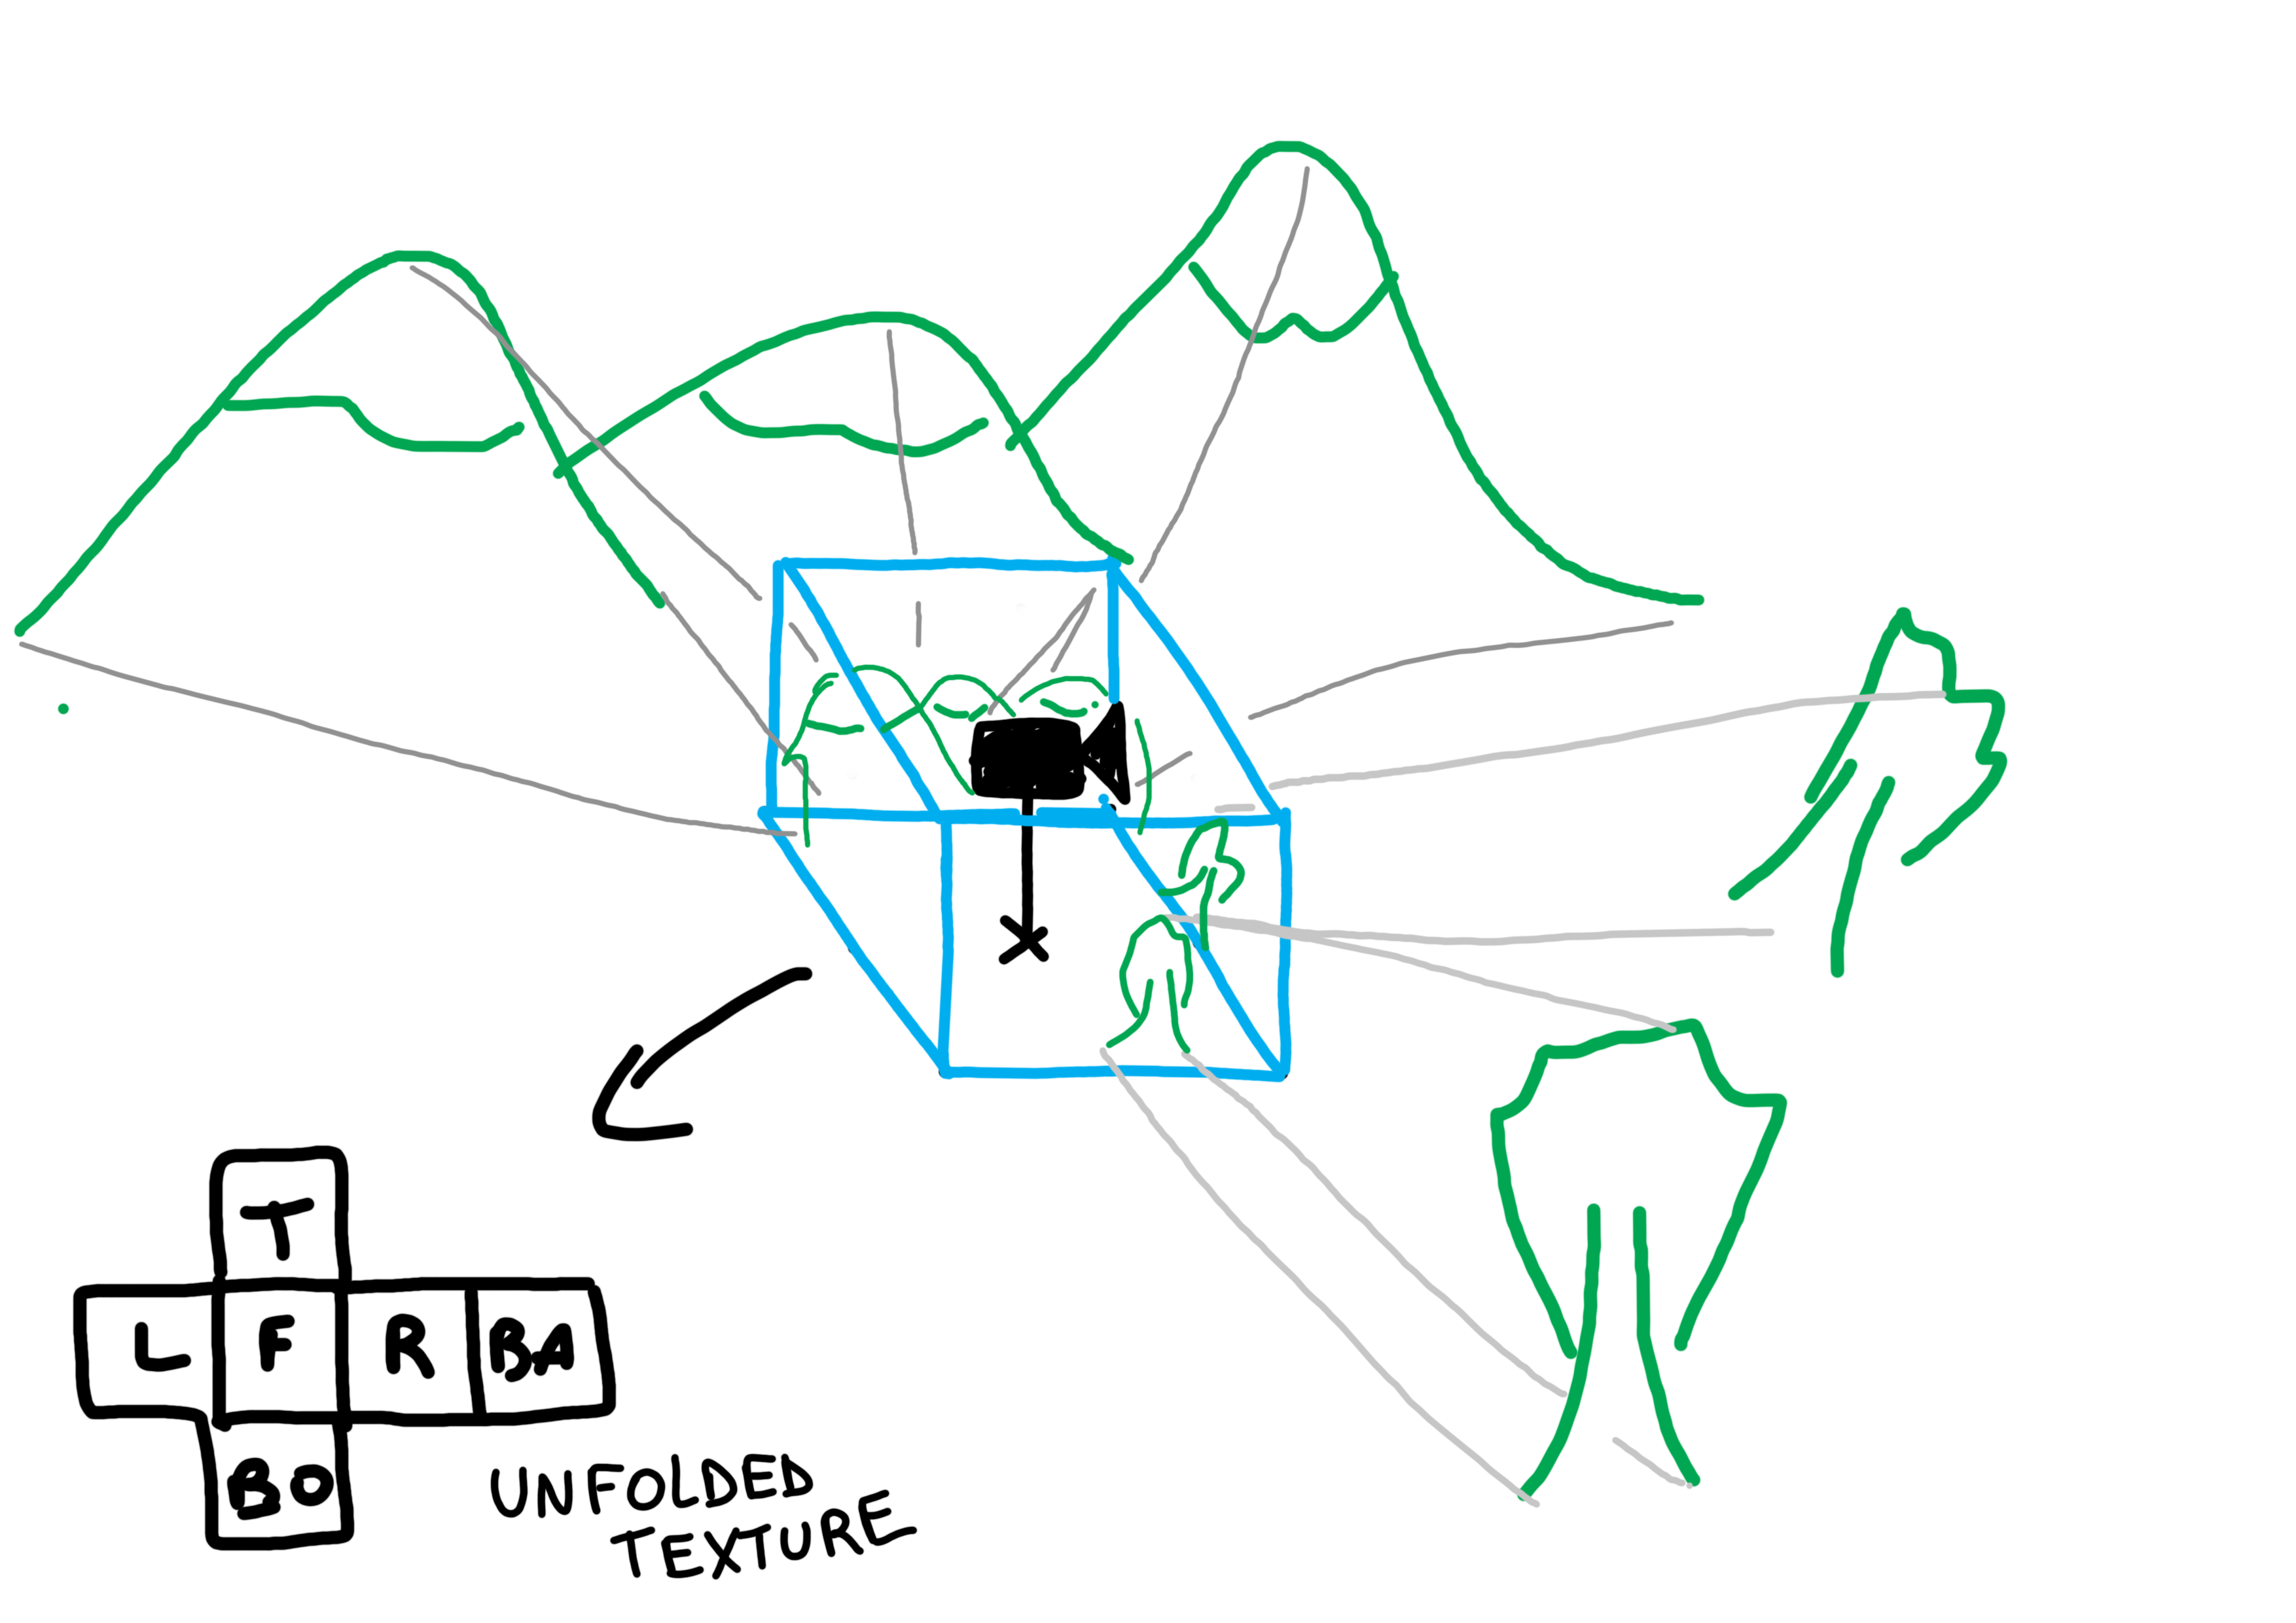 T
L F R BA
BO
UNFOLDED
TEXTURE